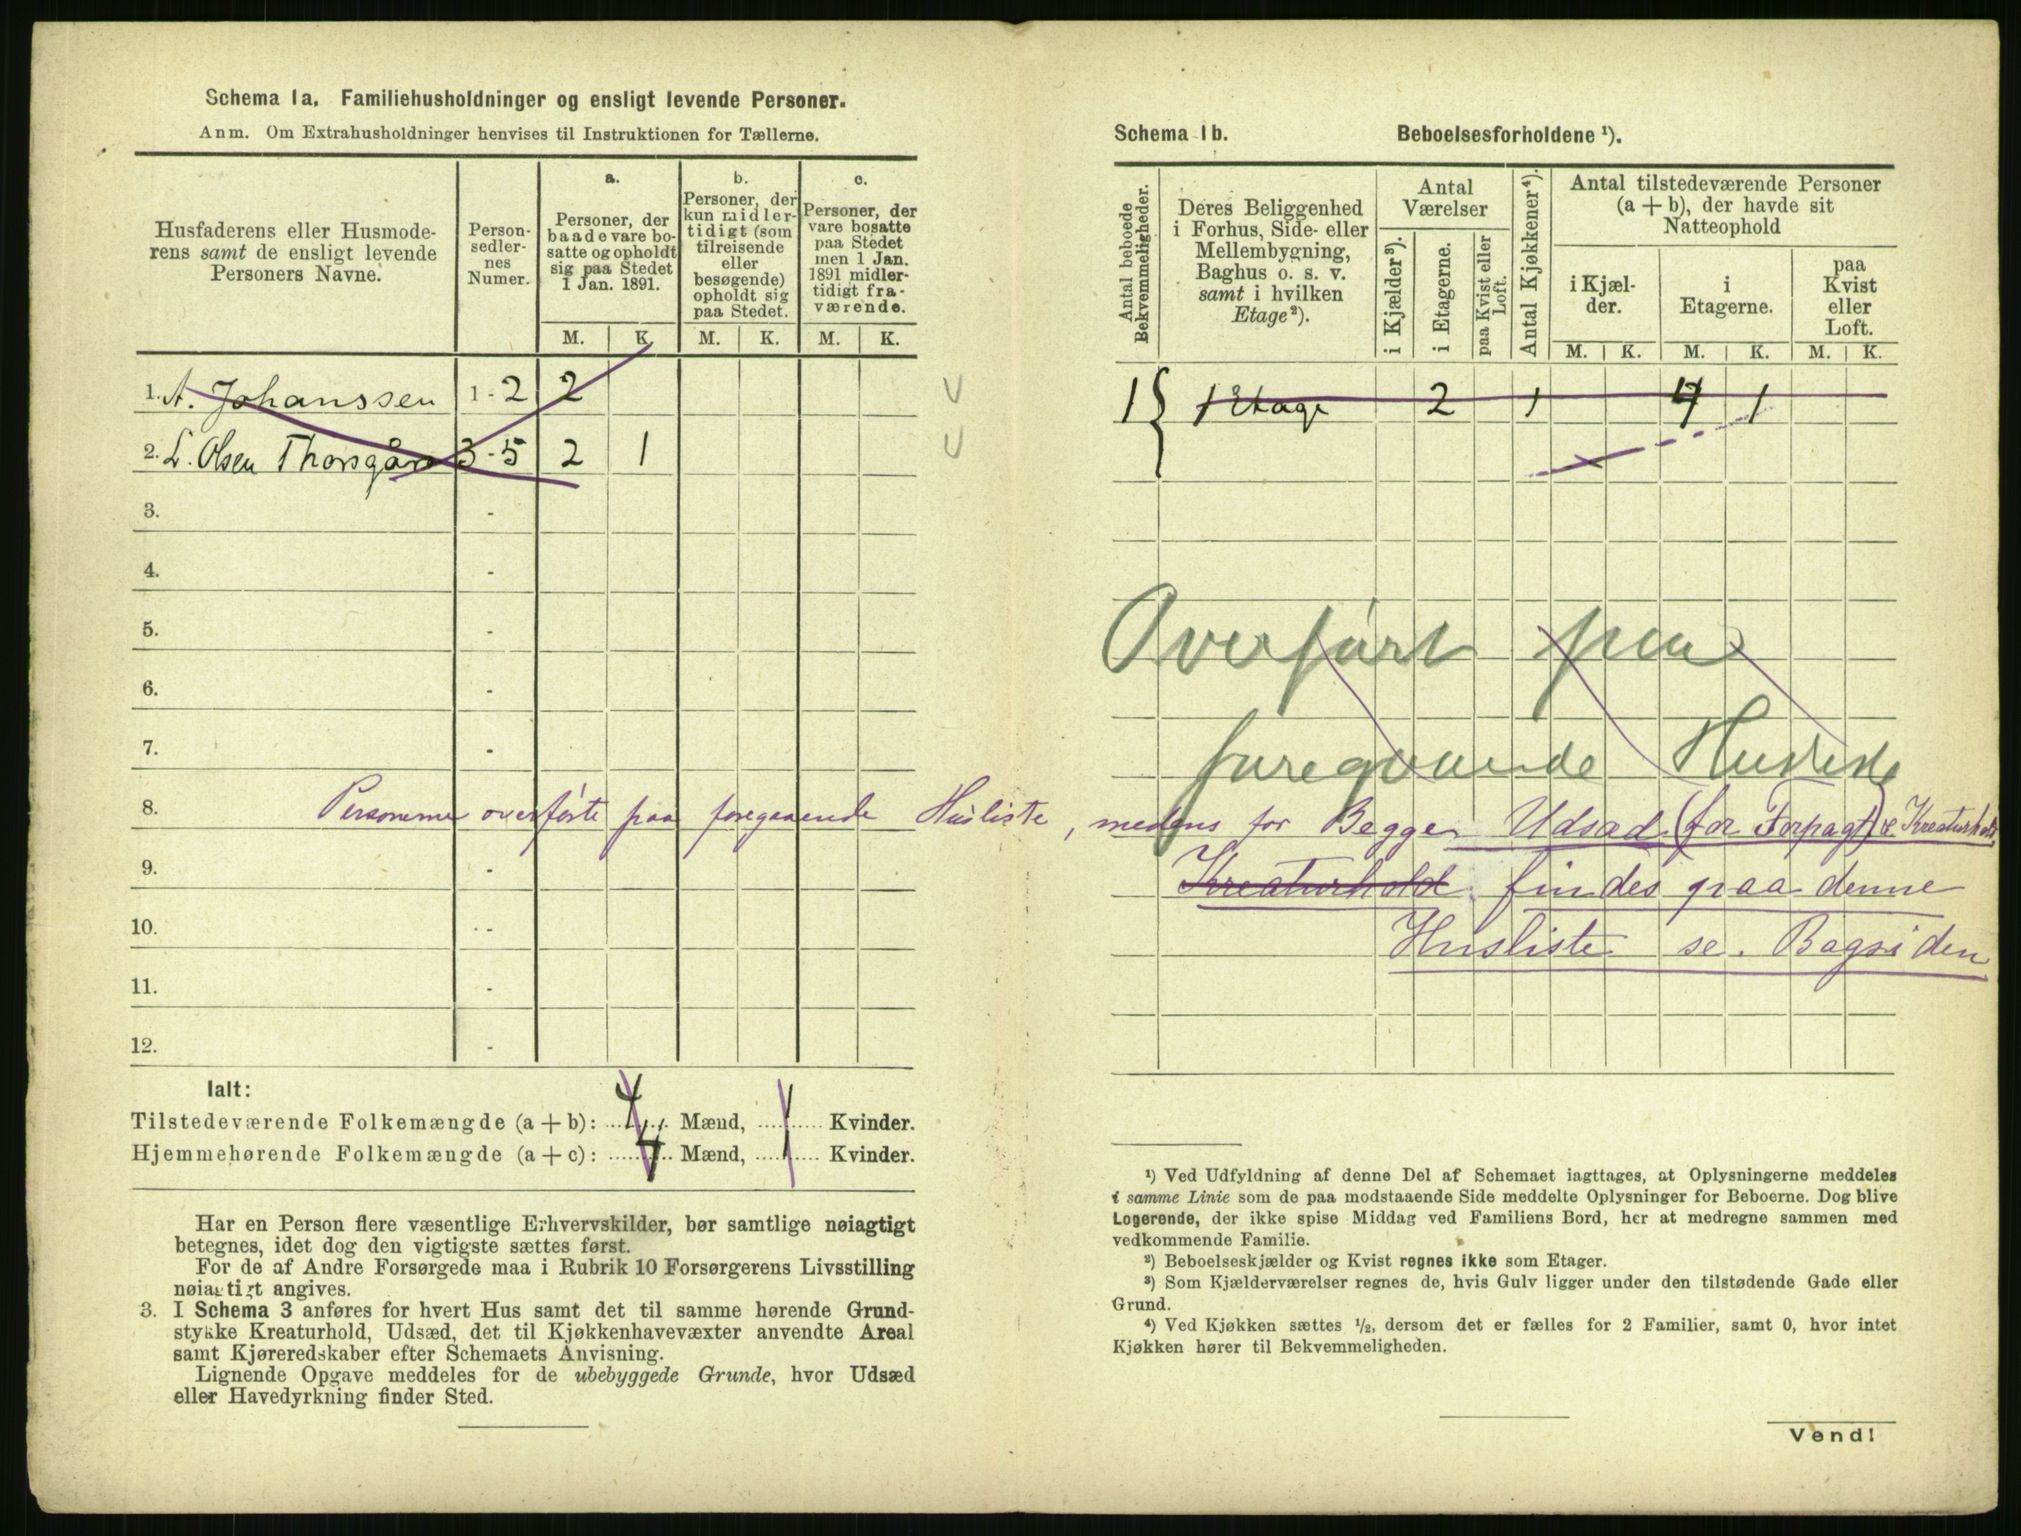 Schema 1a. Familiehusholdninger og ensligt levende Personer.
Anm. Om Extrahusholdninger henvises til Instruktionen for Tællerne.
Husfaderens eller Husmode-
rens samt de ensligt levende
Personers Navne.
Person-
sedler-
nes
Numer.
a.
Personer, der
baade vare bo-
satte og opholdt
sig paa Stedet
1 Jan. 1891.
b.
Personer, der
kun midler-
tidigt (som
tilreisende
eller
besøgende)
opholdt sig
paa Stedet.
c.
Personer, der
vare bosatte
paa Stedet
men 1 Jan.
1891 midler-
tidigt fra-
værende.
M. K. M. K. M. K.
1. A. Johanssen 1-2 2
2. L. Olsen Thorsgård 3-5 2 1
3. -
4. -
5. -
6. -
7. -
8. Personerne overførte paa foregaaende Husliste, medens for Begge Udsæd (for Forpagt) & Kreaturhold
9. -
10. -
11. -
12. -
Ialt:
Tilstedeværende Folkemængde (a + b): 4 Mænd, 1 Kvinder.
Hjemmehørende Folkemængde (a + c): 4 Mænd, 1 Kvinder.
Har en Person flere væsentlige Erhvervskilder, bør samtlige nøiagtigt
betegnes, idet dog den vigtigste sættes først.
For de af Andre Forsørgede maa i Rubrik 10 Forsørgerens Livsstilling
nøiagtigt angives.
3. I Schema 3 anføres for hvert Hus samt det til samme hørende Grund-
stykke Kreaturhold, Udsæd, det til Kjøkkenhavevæxter anvendte Areal
samt Kjøreredskaber efter Schemaets Anvisning.
Lignende Opgave meddeles for de ubebyggede Grunde, hvor Udsæd
eller Havedyrkning finder Sted.
Schema 1b. Beboelsesforholdene ¹).
Antal beboede
Bekvemmeligheder.
Deres Beliggenhed
i Forhus, Side- eller
Mellembygning,
Baghus o. s. v.
samt i hvilken
Etage²).
Antal
Værelser
i Kjælder³).
i Etagerne.
paa Kvist eller
Loft.
Antal Kjøkkener⁴).
Antal tilstedeværende Personer
(a + b), der havde sit
Natteophold
i Kjæl-
der.
i
Etagerne.
paa
Kvist
eller
Loft.
M. K. M. K. M. K.
1 { 1 Etage 2 1 4 1
Overført paa
foregaaende Husliste
Kreaturhold findes paa denne
Husliste se. Bagsiden
¹) Ved Udfyldning af denne Del af Schemaet iagttages, at Oplysningerne meddeles
i samme Linie som de paa modstaaende Side meddelte Oplysninger for Beboerne. Dog blive
Logerende, der ikke spise Middag ved Familiens Bord, her at medregne sammen med
vedkommende Familie.
²) Beboelseskjælder og Kvist regnes ikke som Etager.
³) Som Kjælderværelser regnes de, hvis Gulv ligger under den tilstødende Gade eller
Grund.
⁴) Ved Kjøkken sættes ½, dersom det er fælles for 2 Familier, samt 0, hvor intet
Kjøkken hører til Bekvemmeligheden.
Vend!